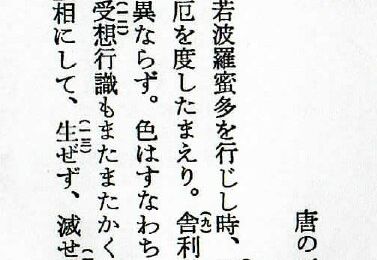 唐の
若波羅蜜多を行じし時、
厄を度したまえり。舎(九)利
異ならず。色はすなわち
(一二)受想行識もまたまたかく
相にして、(一三)生ぜず、滅せ